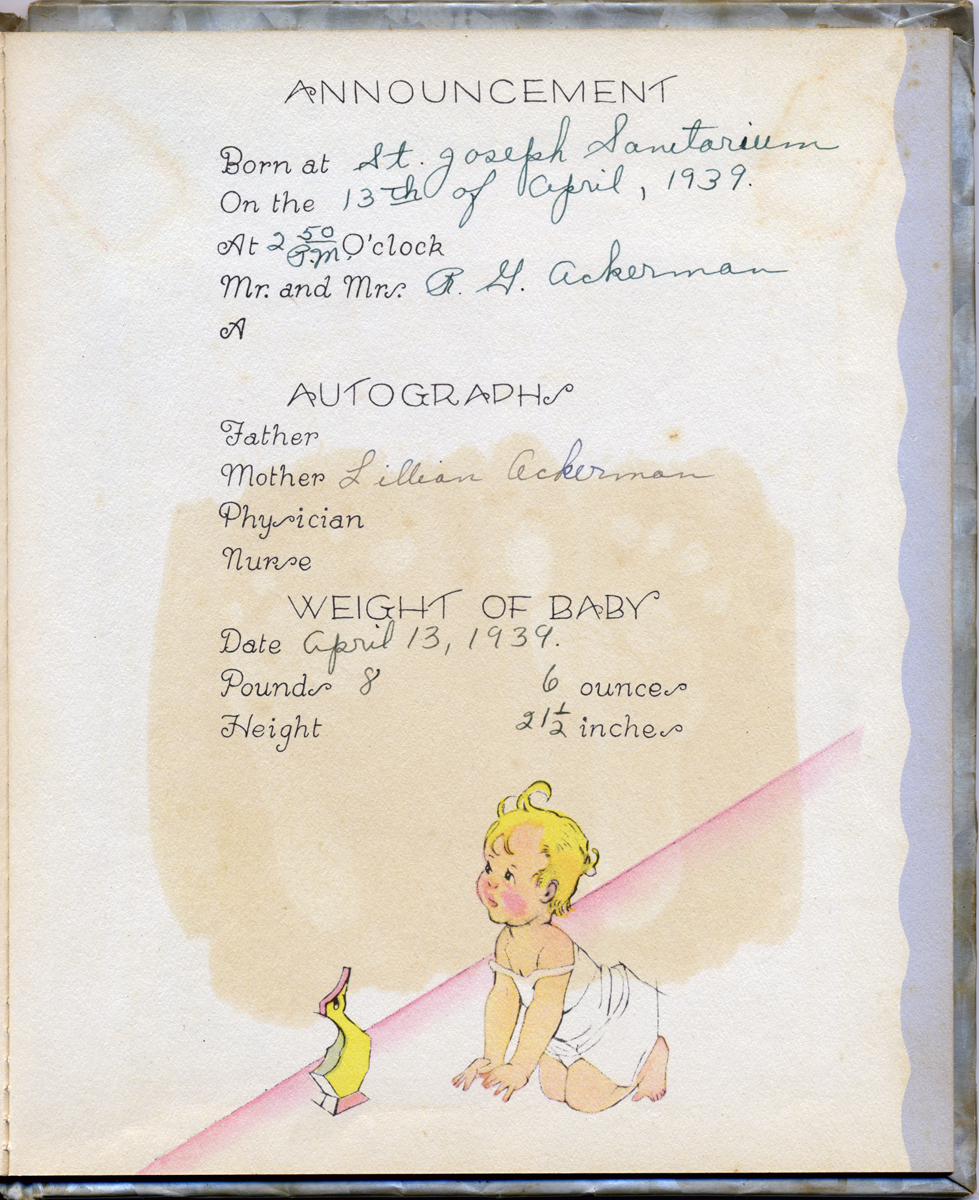 ANNOUNCEMENT
Born at St. Joseph Sanitarium
On the 13th of April, 1939.
At 2 50 P.M. O'clock
Mr. and Mrs. R. G. Ackerman
A
AUTOGRAPHS
Father
Mother Lillian Ackerman
Physician
Nurse
WEIGHT OF BABY
Date April 13, 1939.
Pounds 8 6 ounces
Height 21½ inches